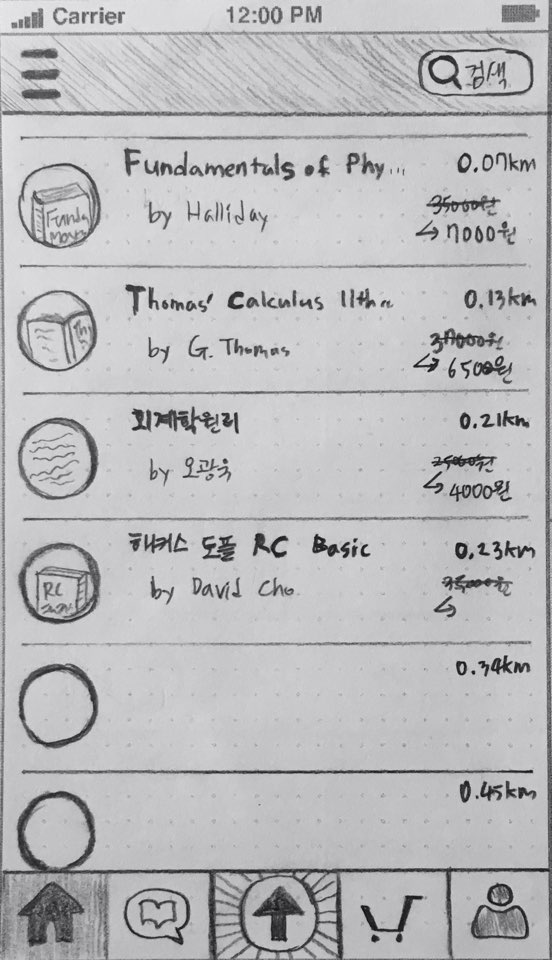 Carrier 12:00 PM
검색
Fundamentals of Phy... 0.07km
by Halliday 35000원
7000원
Funda
Thomas' Calculus 11th 0.13km
by G. Thomas 37000원
6500원
회계학원리 0.21km
by 오광욱
4000원
해커스 토플 RC Basic 0.23km
by David Cho
RC
0.34km
0.45km